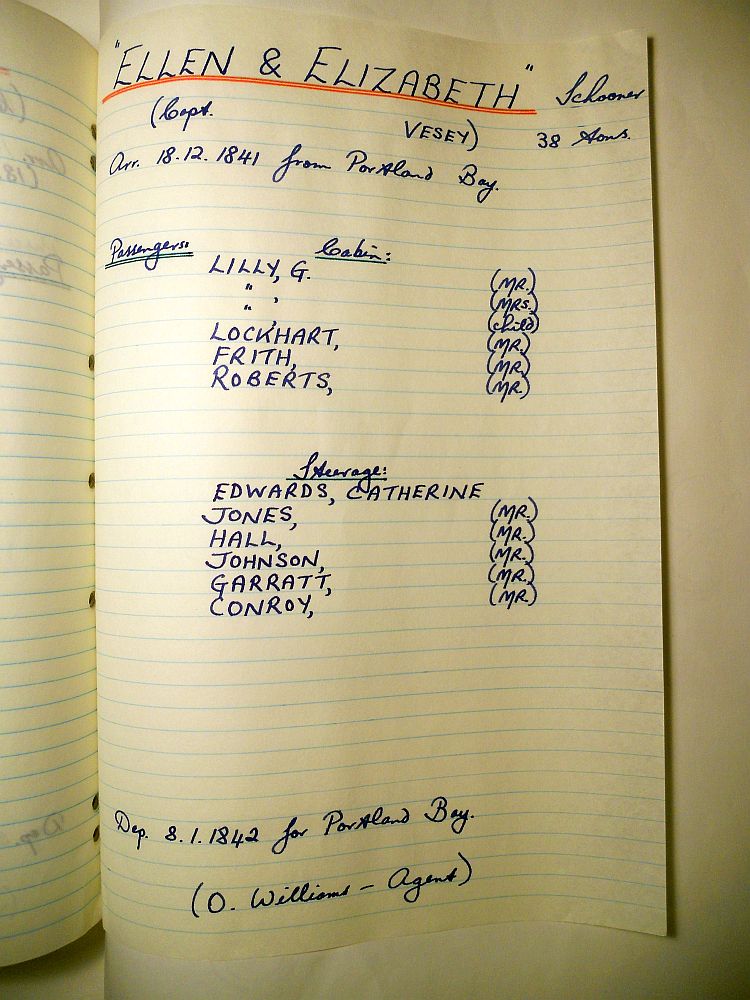 "ELLEN & ELIZABETH" Schooner
(Capt. VESEY) 38 tons.
Arr. 18.12.1841 from Portland Bay.
Passengers: Cabin:
LILLY, G. (MR.)
" , (MRS.)
" , (child)
LOCKHART, (MR.)
FRITH, (MR.)
ROBERTS, (MR.)
Steerage:
EDWARDS, CATHERINE
JONES, (MR.)
HALL, (MR.)
JOHNSON, (MR.)
GARRATT, (MR.)
CONROY, (MR.)
Dep. 8.1.1842 for Portland Bay.
(O. Williams - Agent)